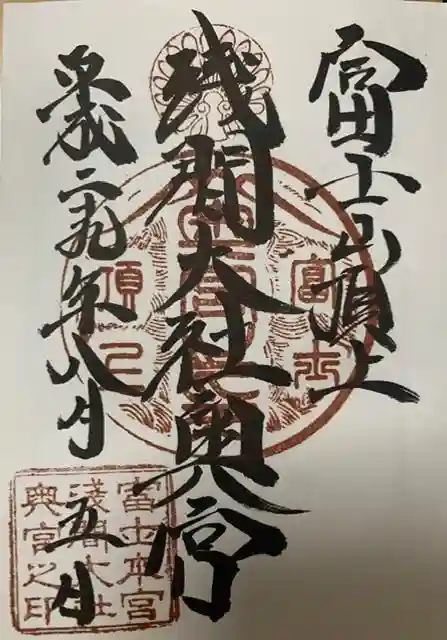 富士山頂上
浅間大社奥宮
平成二九年八月五日
富士
頂上
富士本宮
淺間大社
奥宮之印